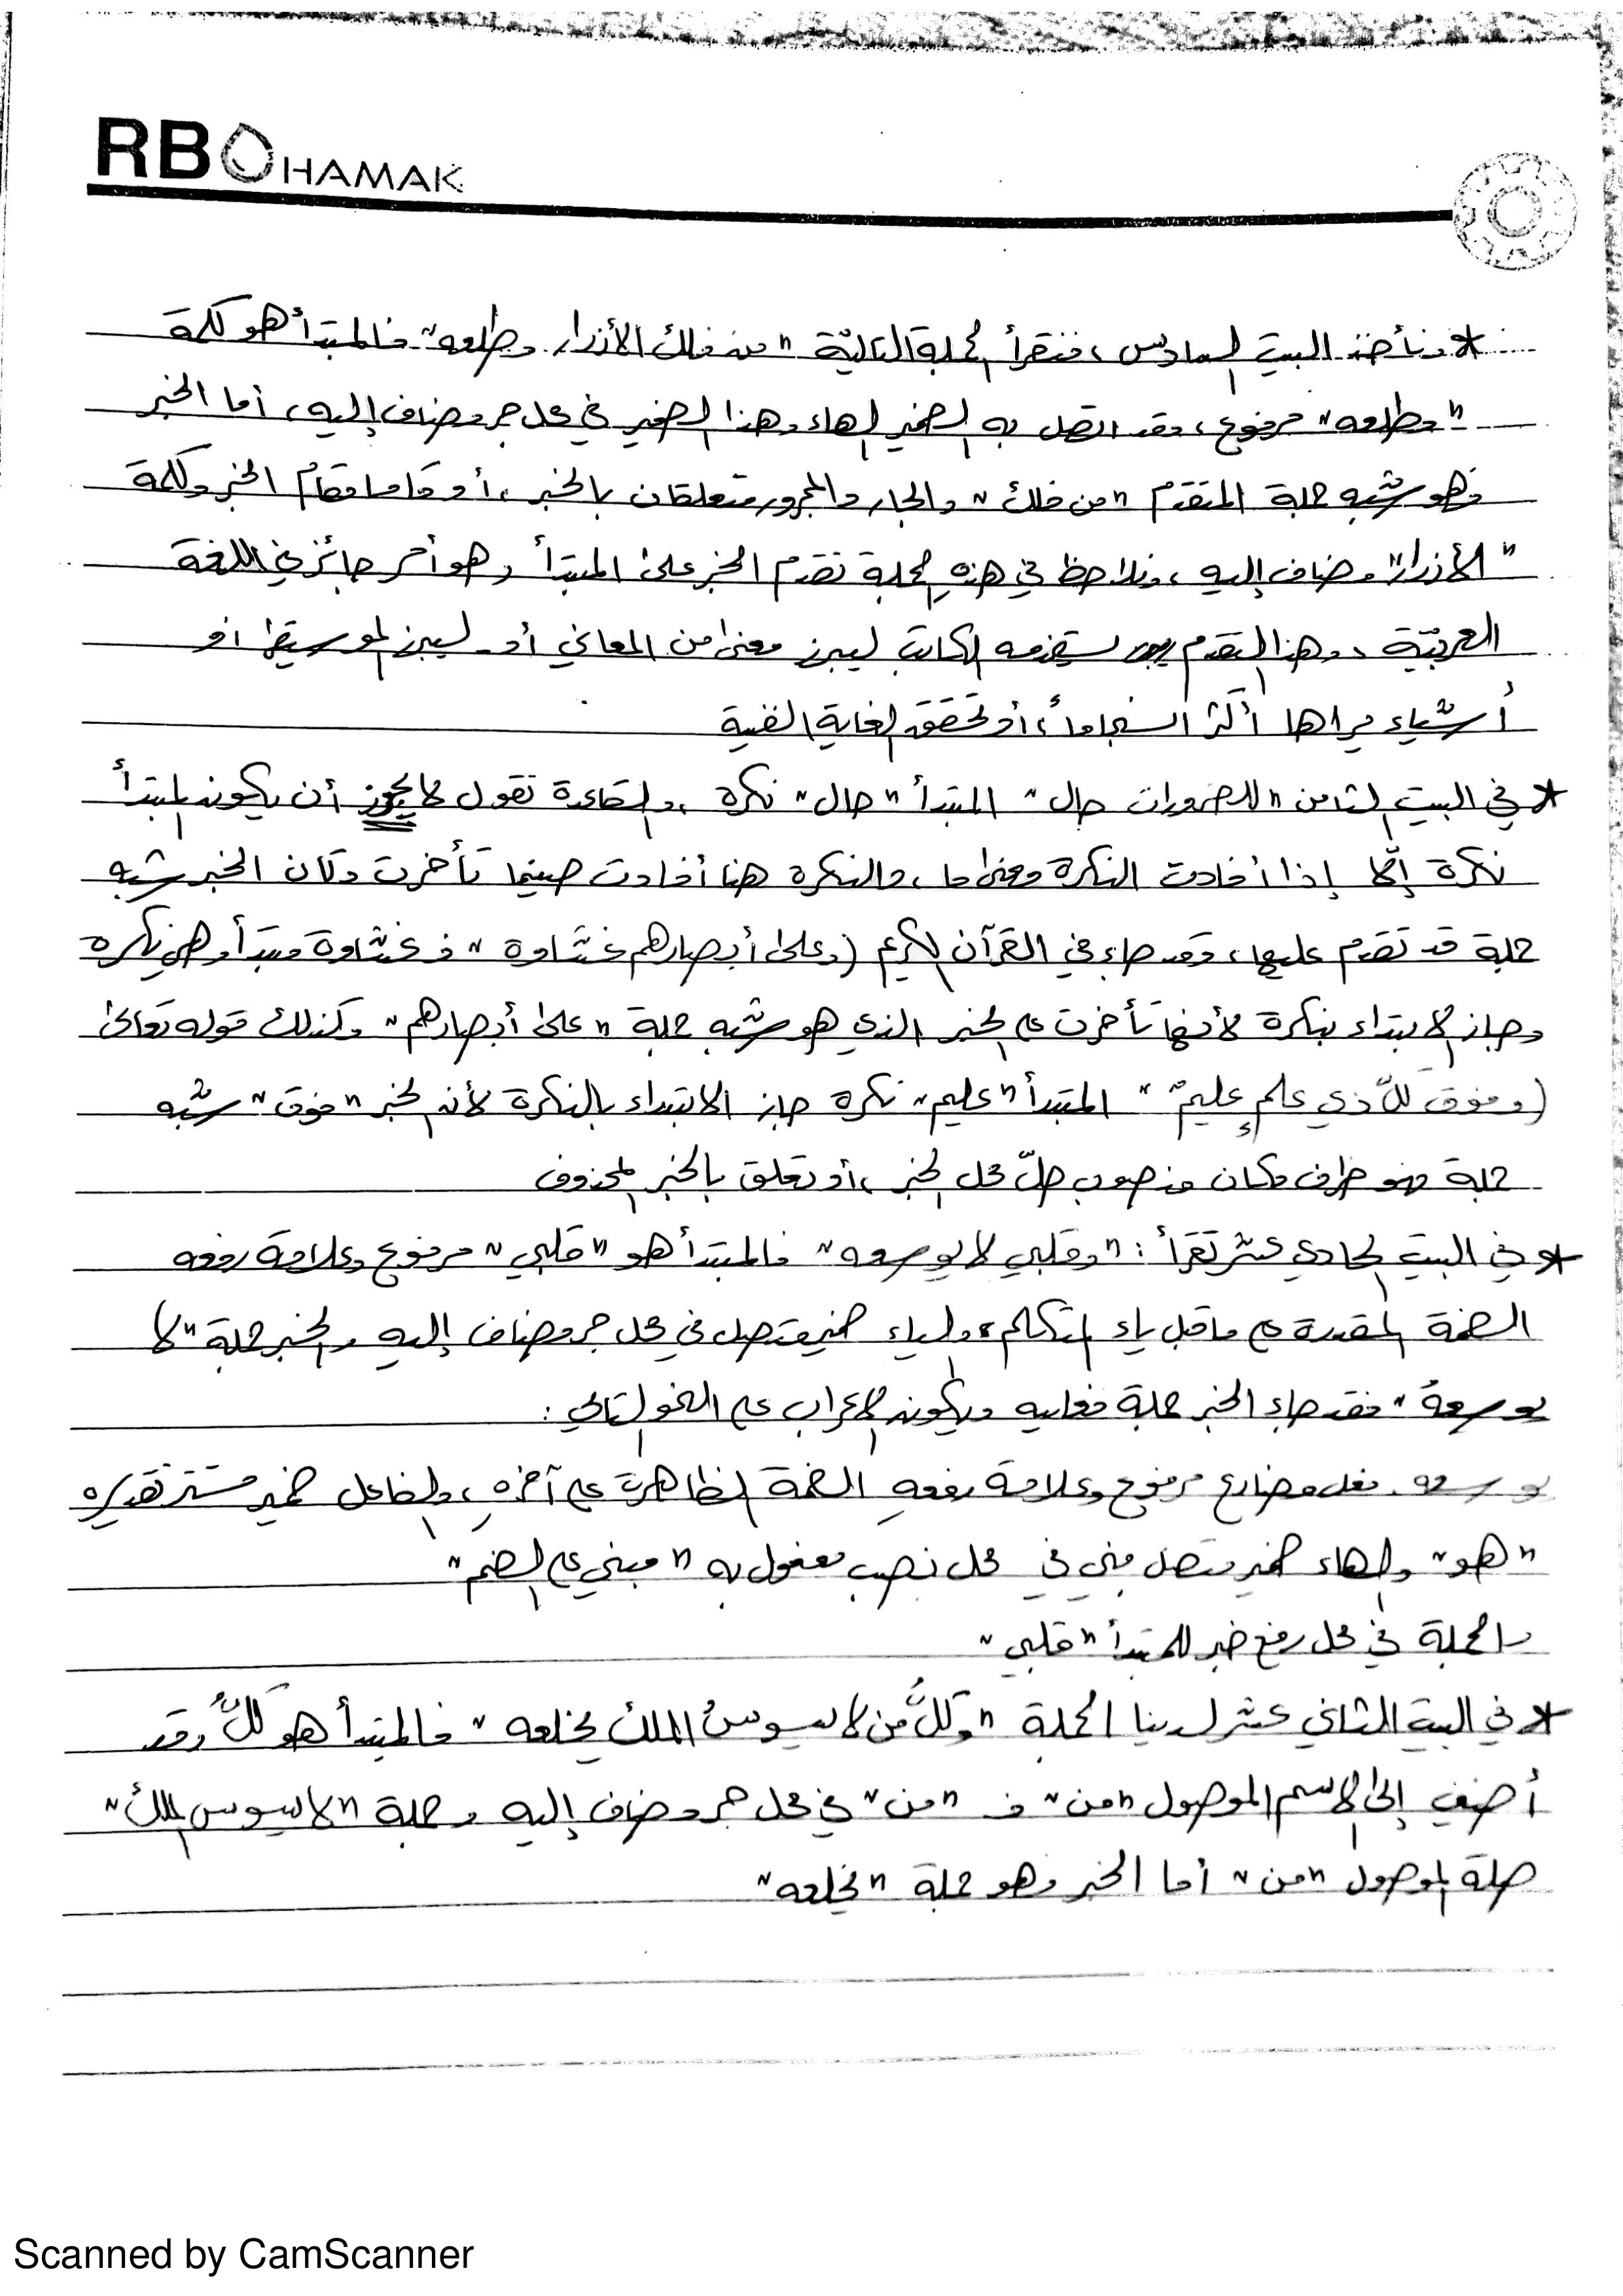 RBOHAMAK
* ونأخذ البيت السادس، فنقرأ الجملة التاليّة "من فلك الأزرار مطلعه" فالمبتدأ هو كلمة
"مطلعه" مرفوع، وقد اتصل به الضمير الهاء وهذا الضمير في محل جر مضاف إليه، أما الخبر
فهو شبه جملة المتقدم "من فلك" والجار والمجرور متعلقان بالخبر، أو قاما مقامُ الخبر وكلمة
"الأزرار" مضاف إليه، ونلاحظ في هذهِ الجملة تقدم الخبر على المبتدأ وهو أمر جائز في اللغة
العربيّة، وهذا التقدم يستخدمه الكاتب ليبرز معنىً من المعاني أو ليبرز الموسيقا أو
أشياء يراها أكثر انسجاماً، أو تحقق الغاية الفنية
* في البيت الثامن "للضرورات حال" المبتدأ "حال" نكرة، والقاعدة تقول لا يجوز أن يكون المبتدأ
نكرة إلّا إذا أفادت النكرة معنىً ما، والنكرة هنا أفادت حينما تأخرت وكان الخبر شبه
جملة قد تقدم عليها، وقد جاء في القرآن الكريم (وعلى أبصارهم غشاوة" فـ غشاوة مبتدأ وهي نكرة
وجاز الابتداء بنكرة لأنها تأخرت على الخبر الذي هو شبه جملة "على أبصارهم" وكذلك قوله تعالى
(وفوق كلّ ذي علمٍ عليمٌ" المبتدأ "عليم" نكرة جاز الابتداء بالنكرة لأن الخبر "فوق" شبه
جملة فهو ظرف مكان منصوب حلّ محل الخبر، أو تعلق بالخبر المحذوف
* في البيت الحادي عشر نقرأ: "وقلبي لا يوسعه" فالمبتدأ هو "قلبي" مرفوع وعلامة رفعه
الضمة المقدرة على ماقبل ياء المتكلم، والياء ضمير متصل في محل جر مضاف إليه والخبر جملة "لا
يوسعهُ" فقد جاء الخبر جملة فعليه ويكون الإعراب على النحو التالي:
يوسعه. فعل مضارع مرفوع وعلامة رفعهِ الضمة الظاهرة على آخرهِ، والفاعل ضمير مستتر تقديره
"هو" والهاء ضمير متصل مبني في محل نصب مفعول به "مبني على الضم"
والجملة في محل رفع خبر للمبتدأ "قلبي"
* في البيت الثاني عشر لدينا الجملة "وكلُّ من لا يسوسُ الملك يخلعه" فالمبتدأ هو كلُّ وقد
أضيف إلى الاسم الموصول "من" فـ "من" في محل جر مضاف إليه وجملة "لا يسوس الملك"
صلة الموصول "من" أما الخبر فهو جملة "يخلعه"
Scanned by CamScanner